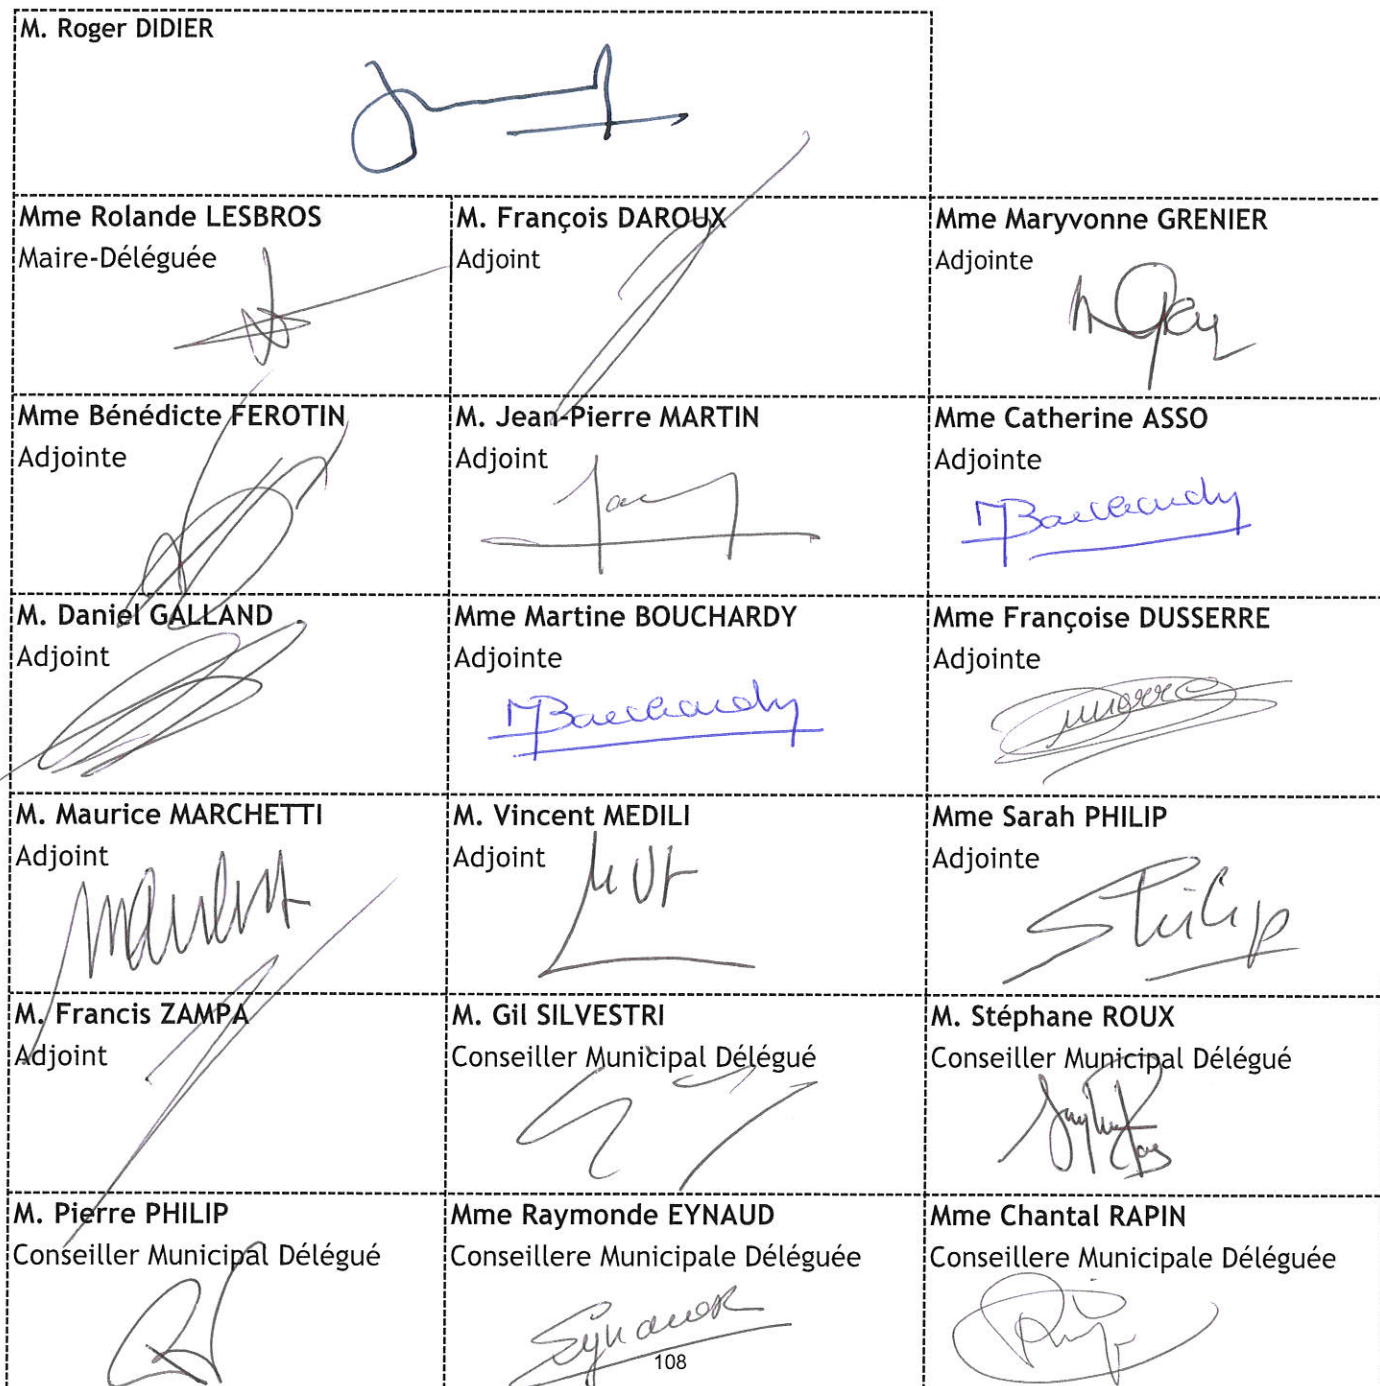 M. Roger DIDIER
Mme Rolande LESBROS
Maire-Déléguée
M. François DAROUX
Adjoint
Mme Maryvonne GRENIER
Adjointe
Mme Bénédicte FEROTIN
Adjointe
M. Jean-Pierre MARTIN
Adjoint
Mme Catherine ASSO
Adjointe
MBouchardy
M. Daniel GALLAND
Adjoint
Mme Martine BOUCHARDY
Adjointe
MBouchardy
Mme Françoise DUSSERRE
Adjointe
M. Maurice MARCHETTI
Adjoint
M. Vincent MEDILI
Adjoint
Mme Sarah PHILIP
Adjointe
SPhilip
M. Francis ZAMPA
Adjoint
M. Gil SILVESTRI
Conseiller Municipal Délégué
M. Stéphane ROUX
Conseiller Municipal Délégué
M. Pierre PHILIP
Conseiller Municipal Délégué
Mme Raymonde EYNAUD
Conseillere Municipale Déléguée
Mme Chantal RAPIN
Conseillere Municipale Déléguée
108